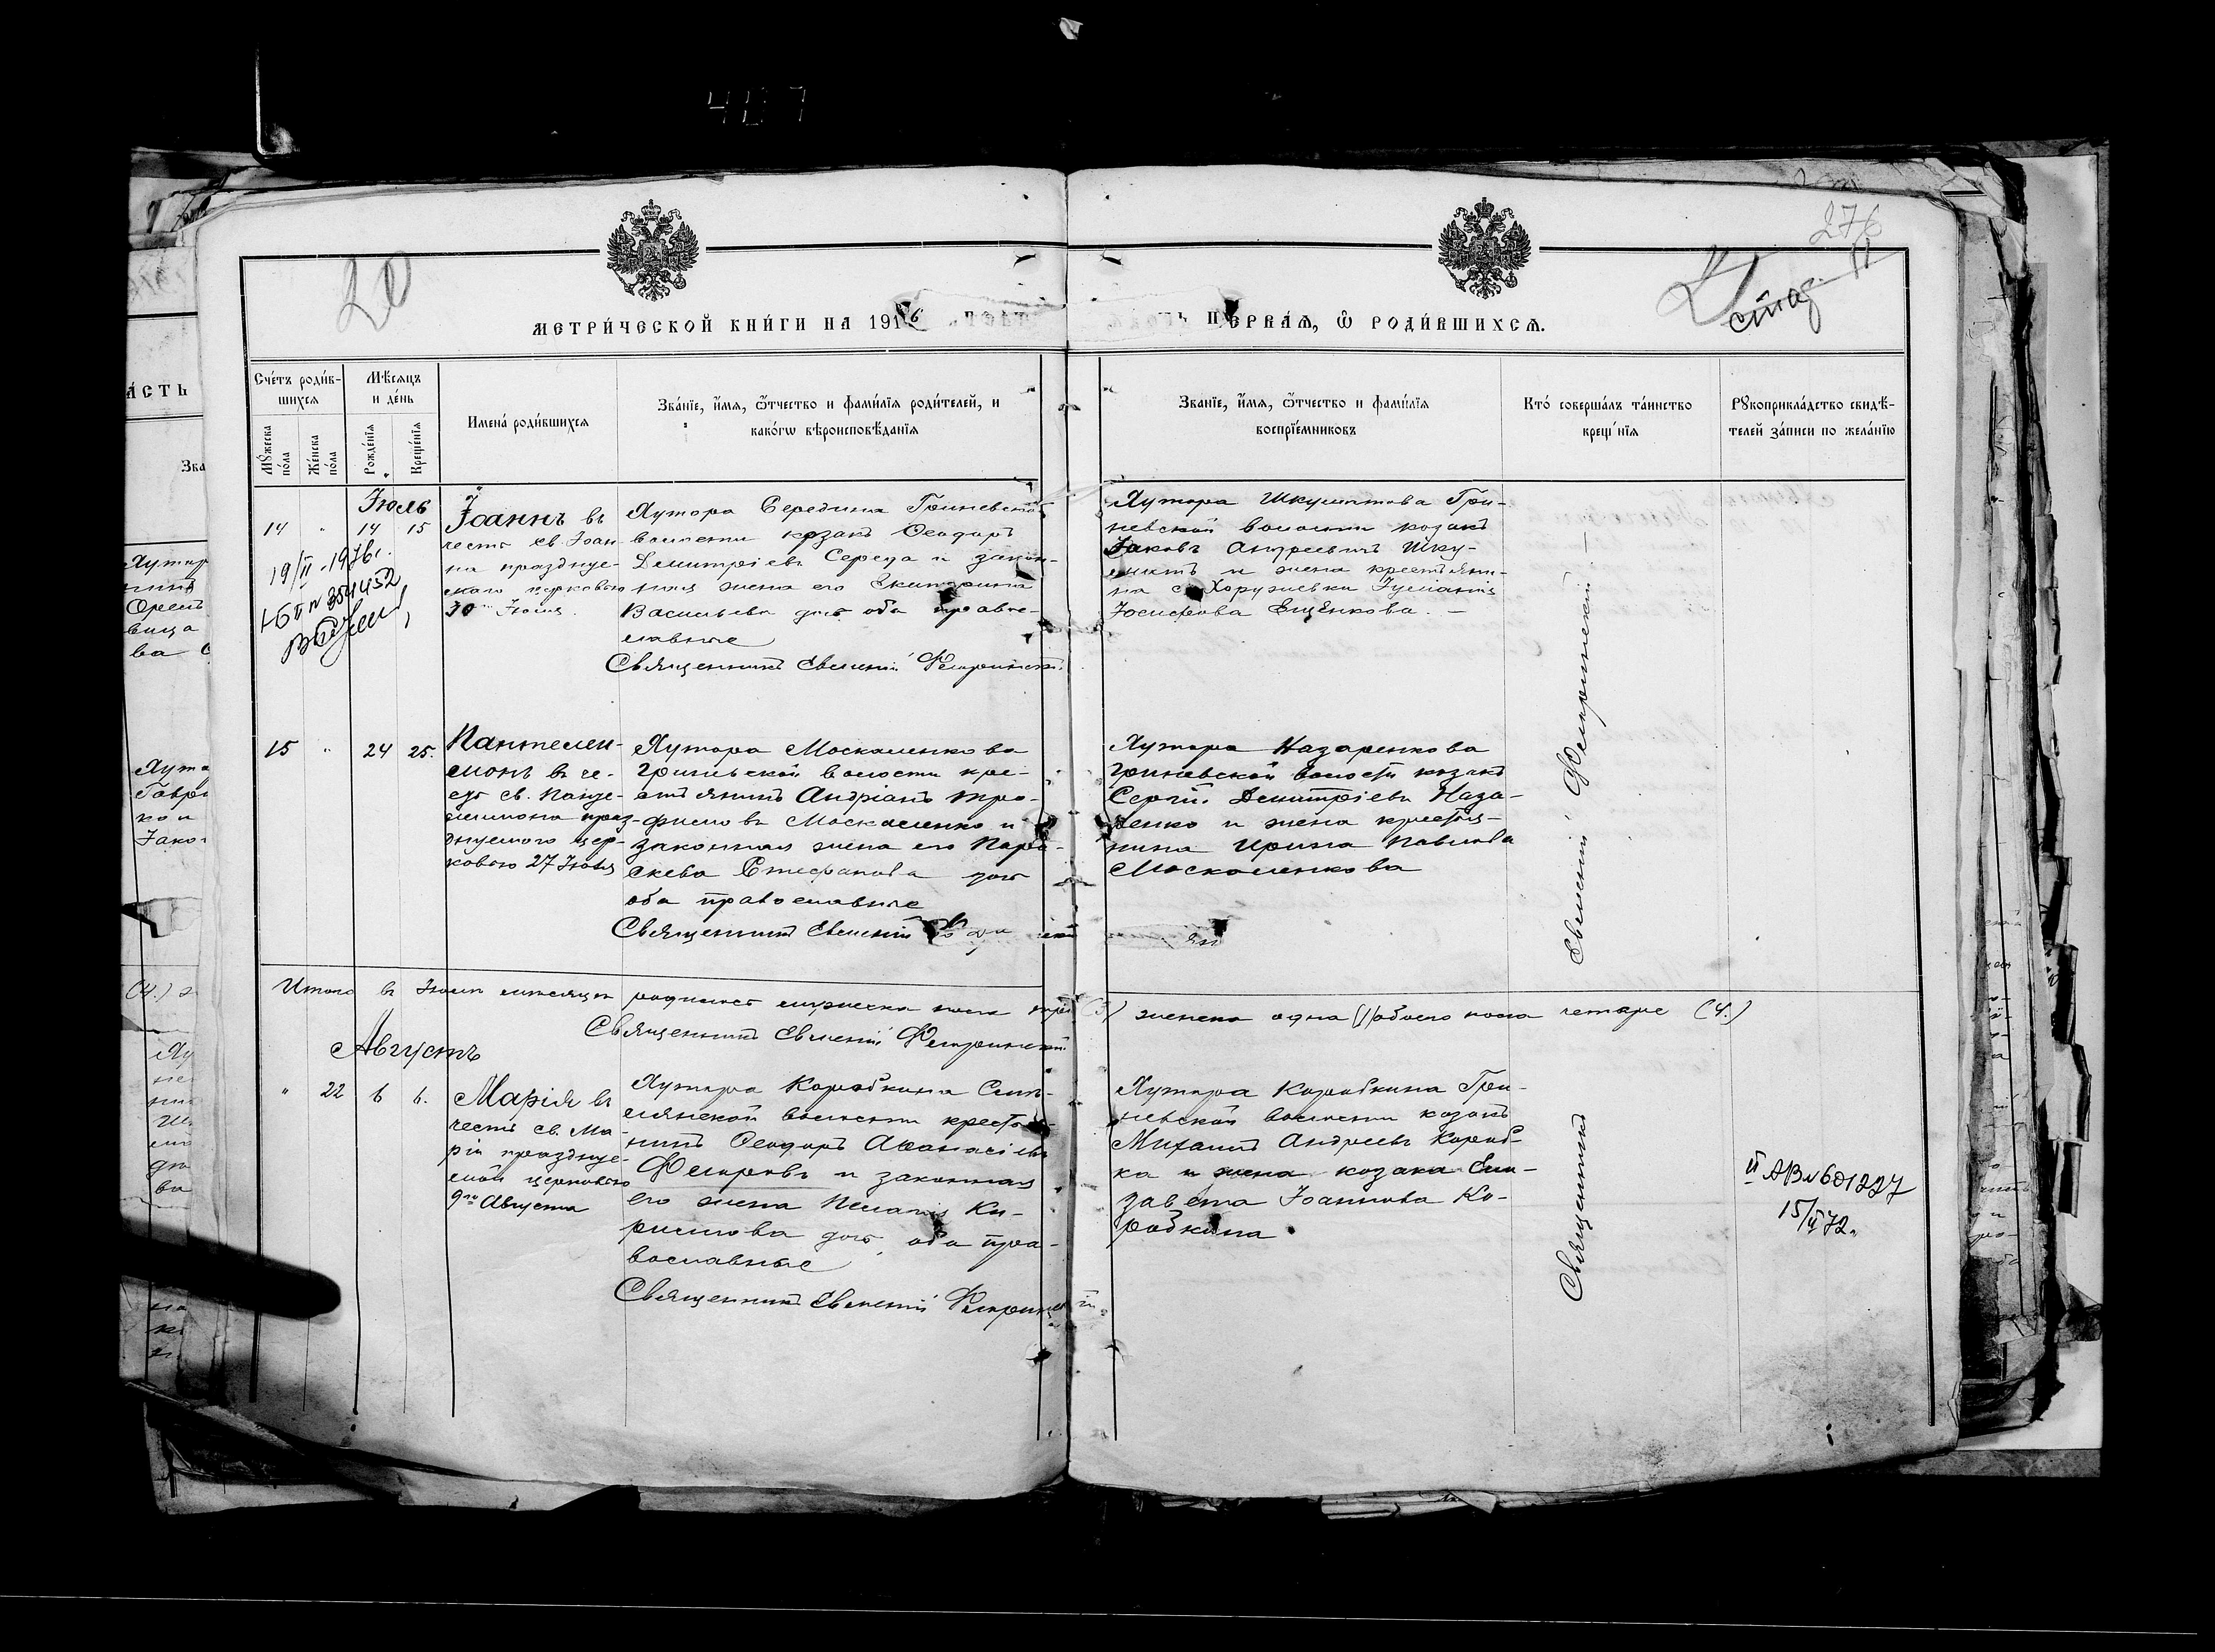 407
276
20
стаж
МЕТРИ́ЧЕСКОЙ КНИ́ГИ НА 1916
ПЕРВАѦ, Ѡ РОДИ́ВШИХСѦ.
Сче́тъ роди́в-
шихся
Мꙋжеска по́ла
Же́нска по́ла
Мѣ́сяцъ
и де́нь
Рожде́нїя
Креще́нїя
Имена́ роди́вшихся
Зва́нїе, и́мя, ѻ҆́тчество и фами́лїя роди́телей, и
како́гѡ вѣроисповѣ́данїя
Зва́нїе, и́мя, ѻ҆́тчество и фами́лїя
воспрїе́мниковъ
Кто́ соверша́лъ та́инство
креще́нїя
Рꙋкоприкла́дство свидѣ́-
телей за́писи по жела́нїю
Іюль
14 " 14 15
19/II-1976г.
Іоаннъ въ
честь св. Іоан-
на праздне-
маго церковью
30 Іюля.
Хутора Середина Гриневской
волости козакъ Ѳеодоръ
Димитріевъ Середа и закон-
ная жена его Екатерина
Васильева дочь оба право-
славные
Священникъ Евгеній
Хутора Шкумятова Гри-
невской волости козакъ
Іаковъ Андреевичъ Шку-
мятъ и жена крестьяни-
на с. Хоружевки Іуліанія
Іосифова Ещенкова. —
15 " 24 25.
Пантелеи-
монъ въ че-
сть св. Панте-
леимона праз-
днуемого цер-
ковью 27 Іюля
Хутора Москаленкова
Гриневской волости кре-
стьянинъ Андріанъ Тро-
фимовъ Москаленко и
законная жена его Пара-
скева Стефанова дочь
оба православные
Священникъ Евгеній
Хутора Назаренкова
Гриневской волости козакъ
Сергій Димитріевъ Наза-
ренко и жена крестья-
нина Ирина Павлова
Москаленкова
Итого въ Іюлѣ мѣсяцѣ родилось мужеска пола три (3) женска одна (1) обоего пола четыре (4.)
Священникъ Евгеній
Августъ
" 22 6 6.
Марія въ
честь св. Ма-
ріи праздну-
емой церковью
9го Августа
Хутора Коробкина Смѣ-
лянской волости крестья-
нинъ Ѳеодоръ Аѳанасіевъ
и законная
его жена Пелагія Ки-
рилова дочь, оба пра-
вославные
Священникъ Евгеній
Хутора Коробкина Гри-
невской волости козакъ
Михаилъ Андреевъ Короб-
ка и жена козака Ели-
завета Іоаннова Ко-
робкина
Священникъ Евгеній
II АВ № 601227
15/II 72г.